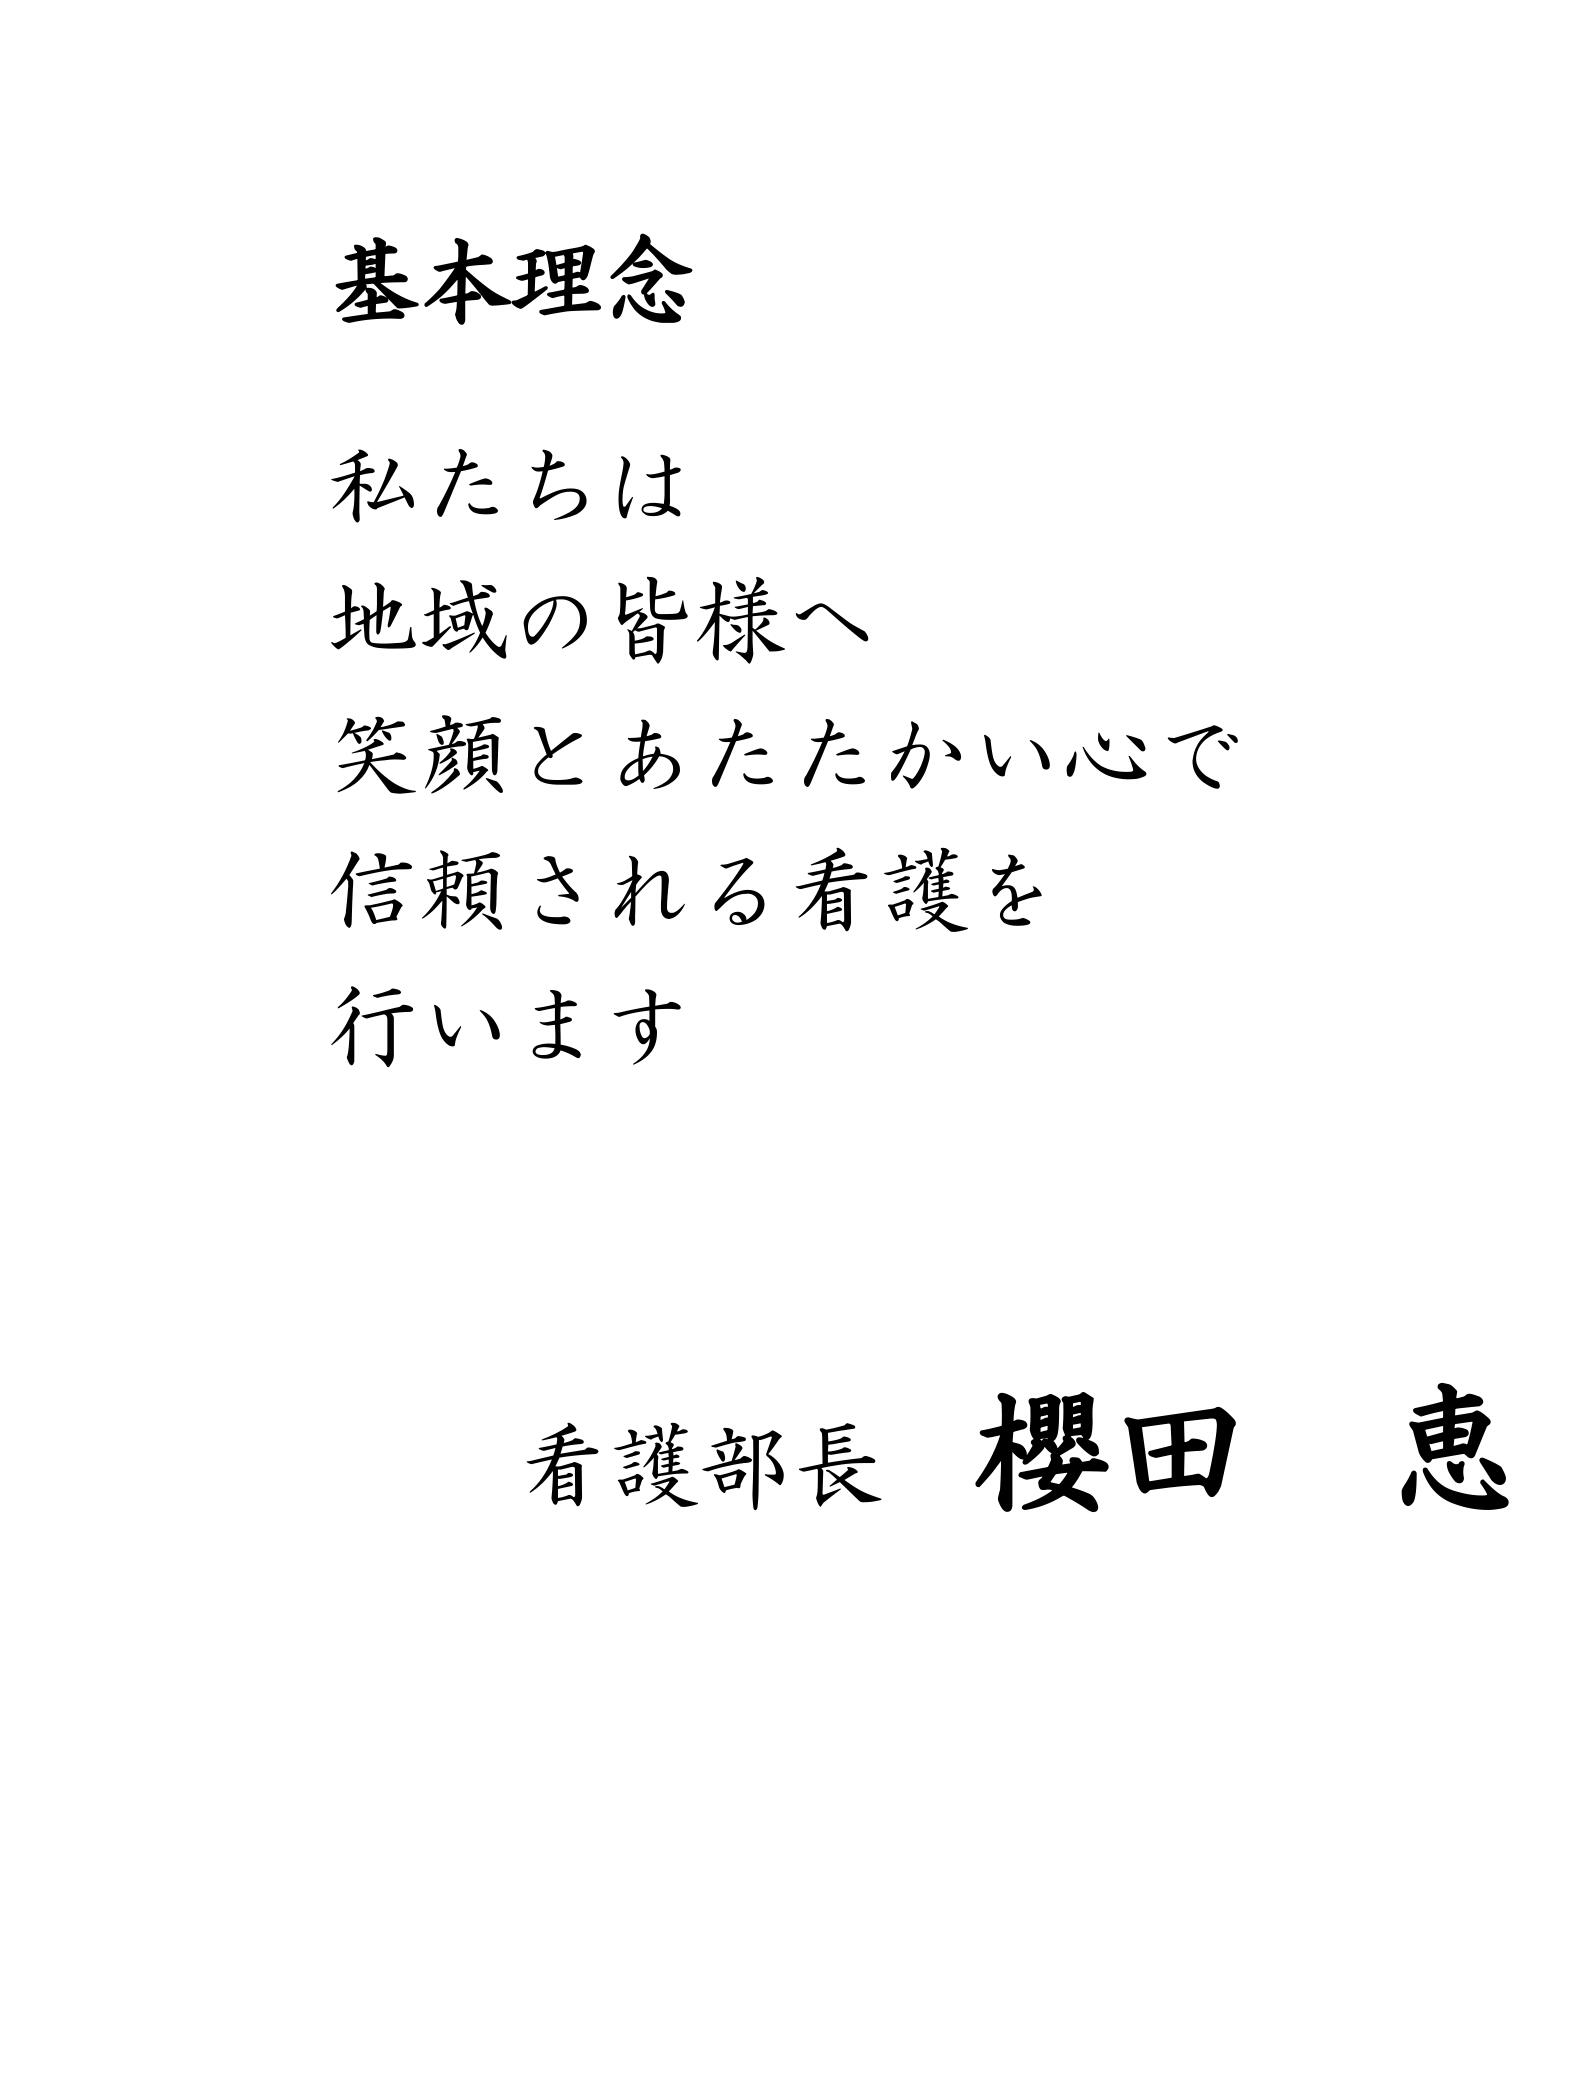 基本理念
私たちは
地域の皆様へ
笑顔とあたたかい心で
信頼される看護を
行います
看護部長　櫻田　恵